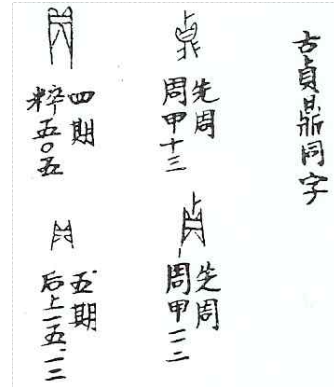 古貞鼎同字
先周
周甲十三
先周
周甲一二
四期
粹五〇五
五期
后上一五.一二